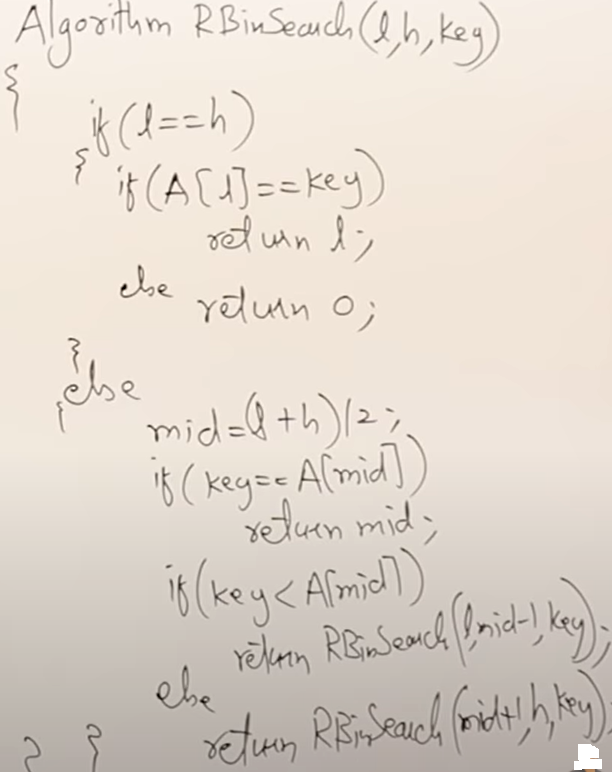 Algorithm RBinSearch(l,h,key)
{
if(l==h)
{ if(A[l]==key)
return l;
else return 0;
}
else
{ mid=(l+h)/2;
if(key==A[mid])
return mid;
if(key<A[mid])
return RBinSearch(l,mid-1,key);
else
return RBinSearch(mid+1,h,key);
} }